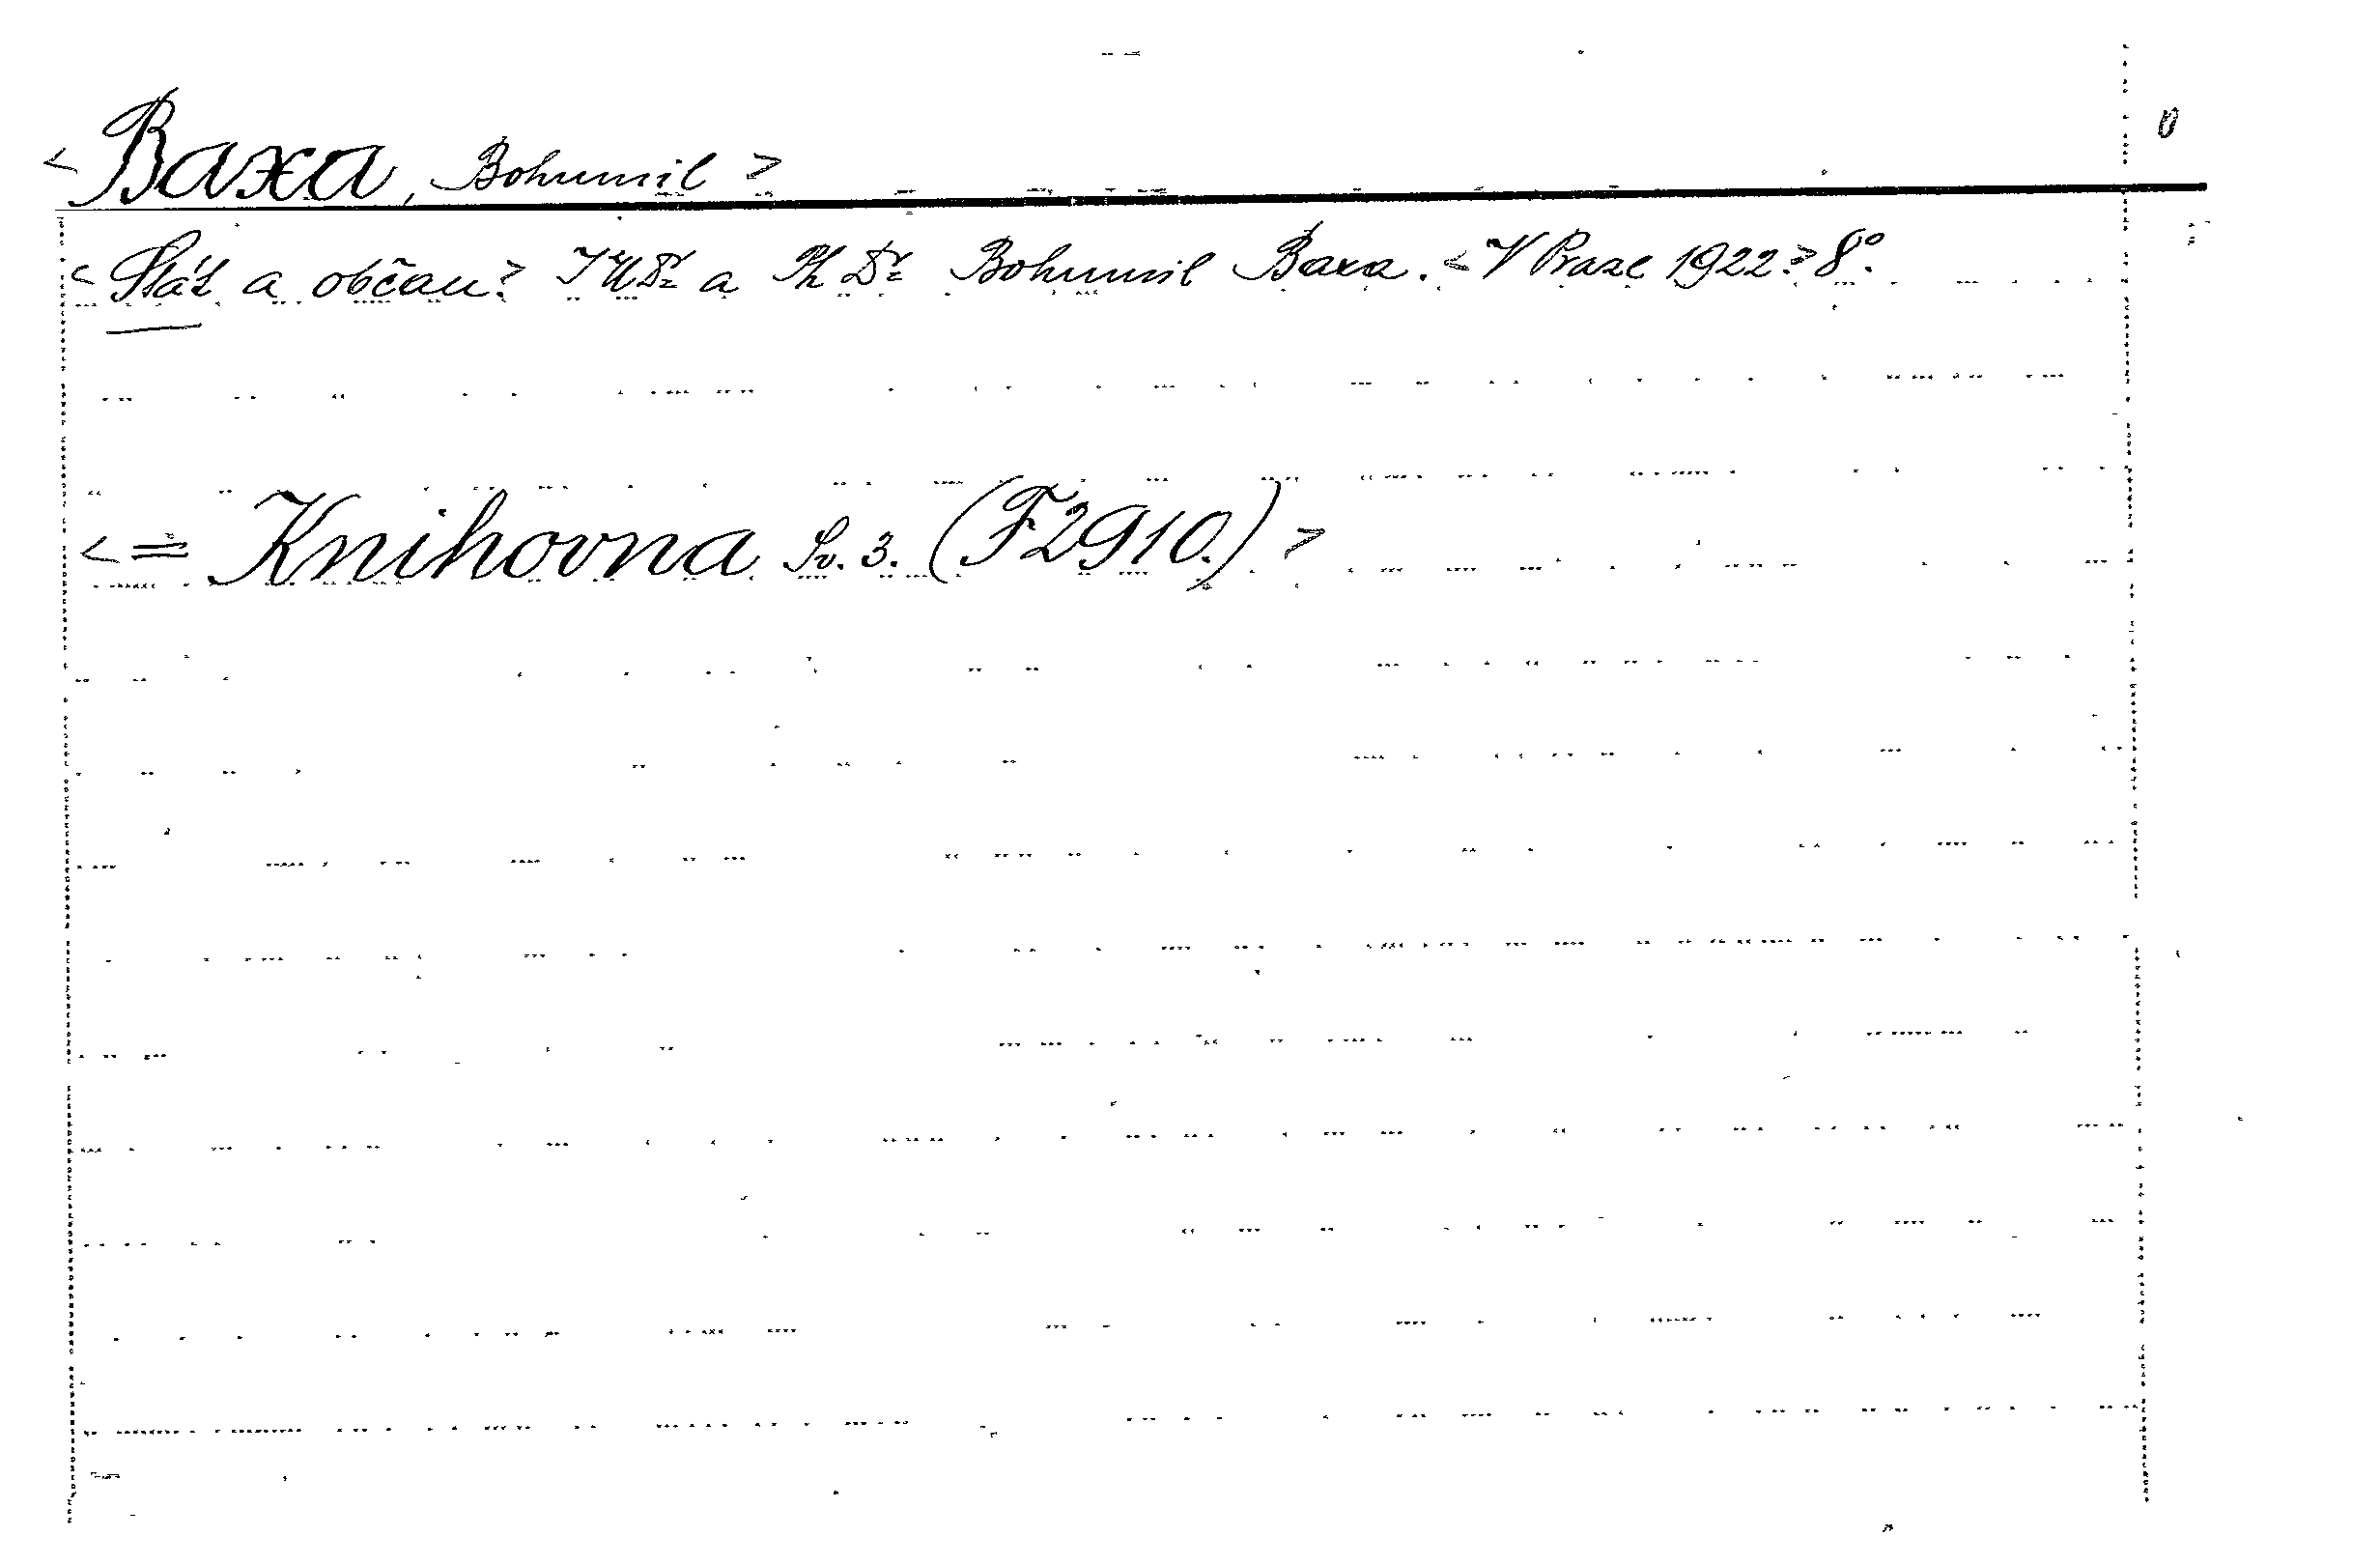 <Baxa, Bohumil> 0
<Stát a občan.> JUDr. a PhDr. Bohumil Baxa. <V Praze 1922.> 8°.
<= Knihovna Sv. 3. (F2910.)>